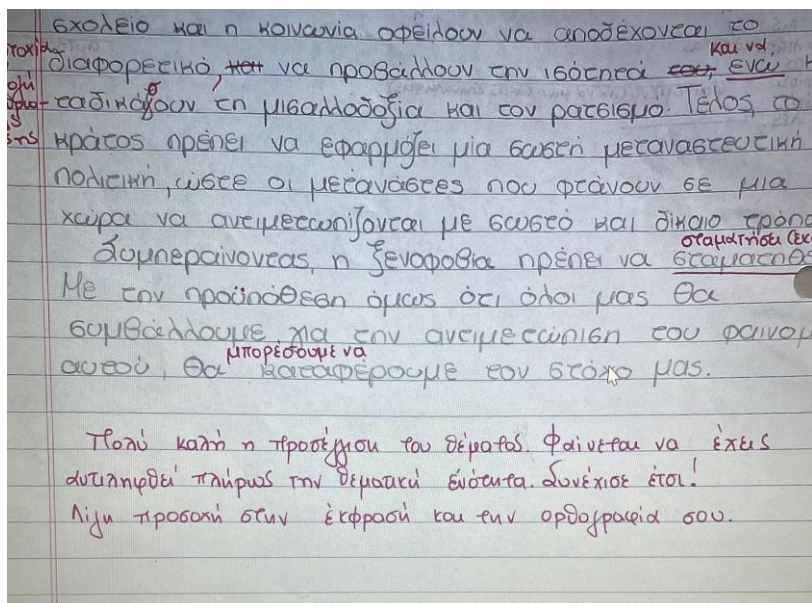 σχολείο και η κοινωνία οφείλουν να αποδέχονται το
και να
διαφορετικό, και να προβάλλουν την ισότητά του, ενώ
ταδικάζουν τη μισαλλοδοξία και τον ρατσισμό. Τέλος, το
κράτος πρέπει να εφαρμόζει μία σωστή μεταναστευτική
πολιτική, ώστε οι μετανάστες που φτάνουν σε μια
χώρα να αντιμετωπίζονται με σωστό και δίκαιο
σταματήσει
Συμπεραίνοντας, η ξενοφοβία πρέπει να
Με την προϋπόθεση όμως ότι όλοι μας θα
συμβάλλουμε για την αντιμετώπιση του
μπορέσουμε να
αυτού, θα καταφέρουμε τον στόχο μας.
Πολύ καλή η προσέγγιση του θέματος. Φαίνεται να έχεις
αντιληφθεί πλήρως την θεματική ενότητα. Συνέχισε έτσι!
Λίγη προσοχή στην έκφρασή και την ορθογραφία σου.